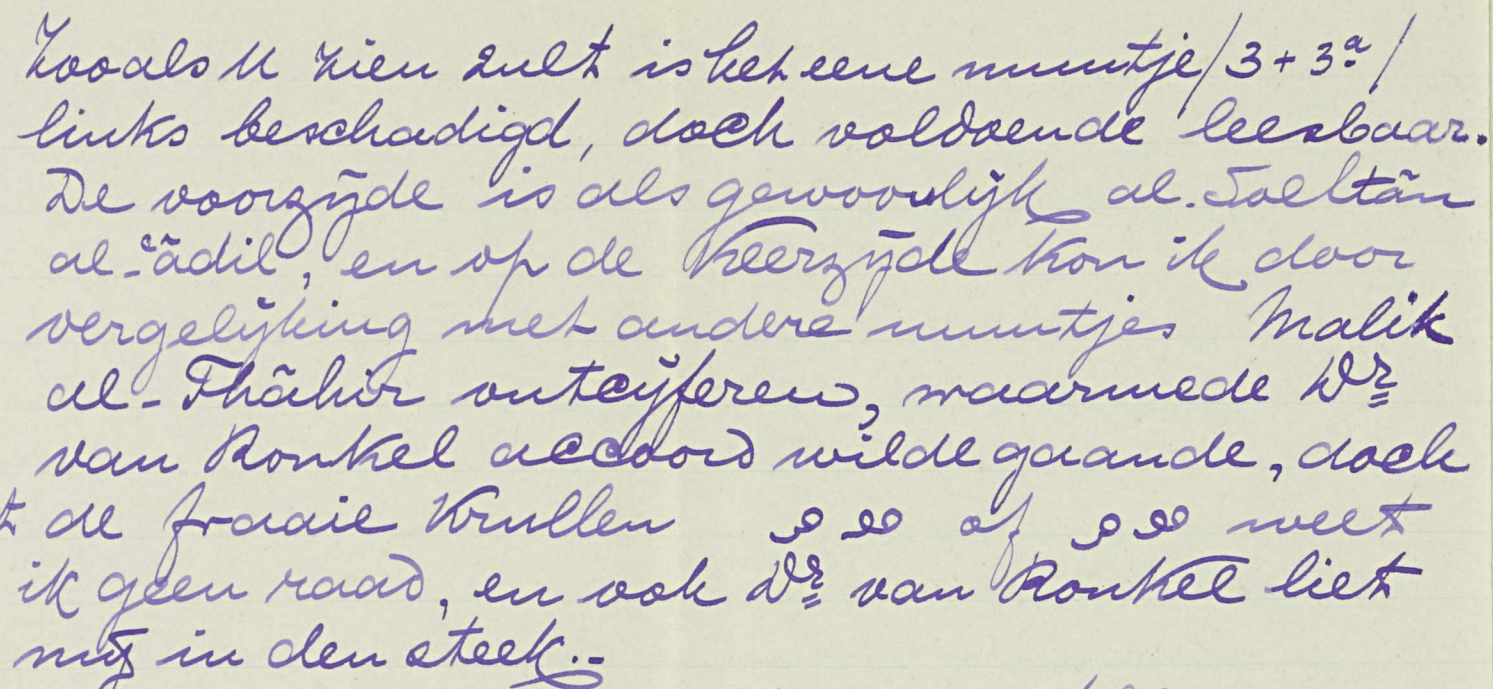 Zooals U zien zult is het eene muntje /3 + 3a/
links beschadigd, doch voldoende leesbaar.
De voorzijde is als gewoonlijk al-Soeltān
al-ʿādil, en op de keerzijde kon ik door
vergelijking met andere muntjes Malik
al-Thāhir ontcijferen, waarmede Dr
van Ronkel accoord wilde gaande, doch
de fraaie krullen of weet
ik geen raad, en ook Dr van Ronkel liet
mij in den steek.-